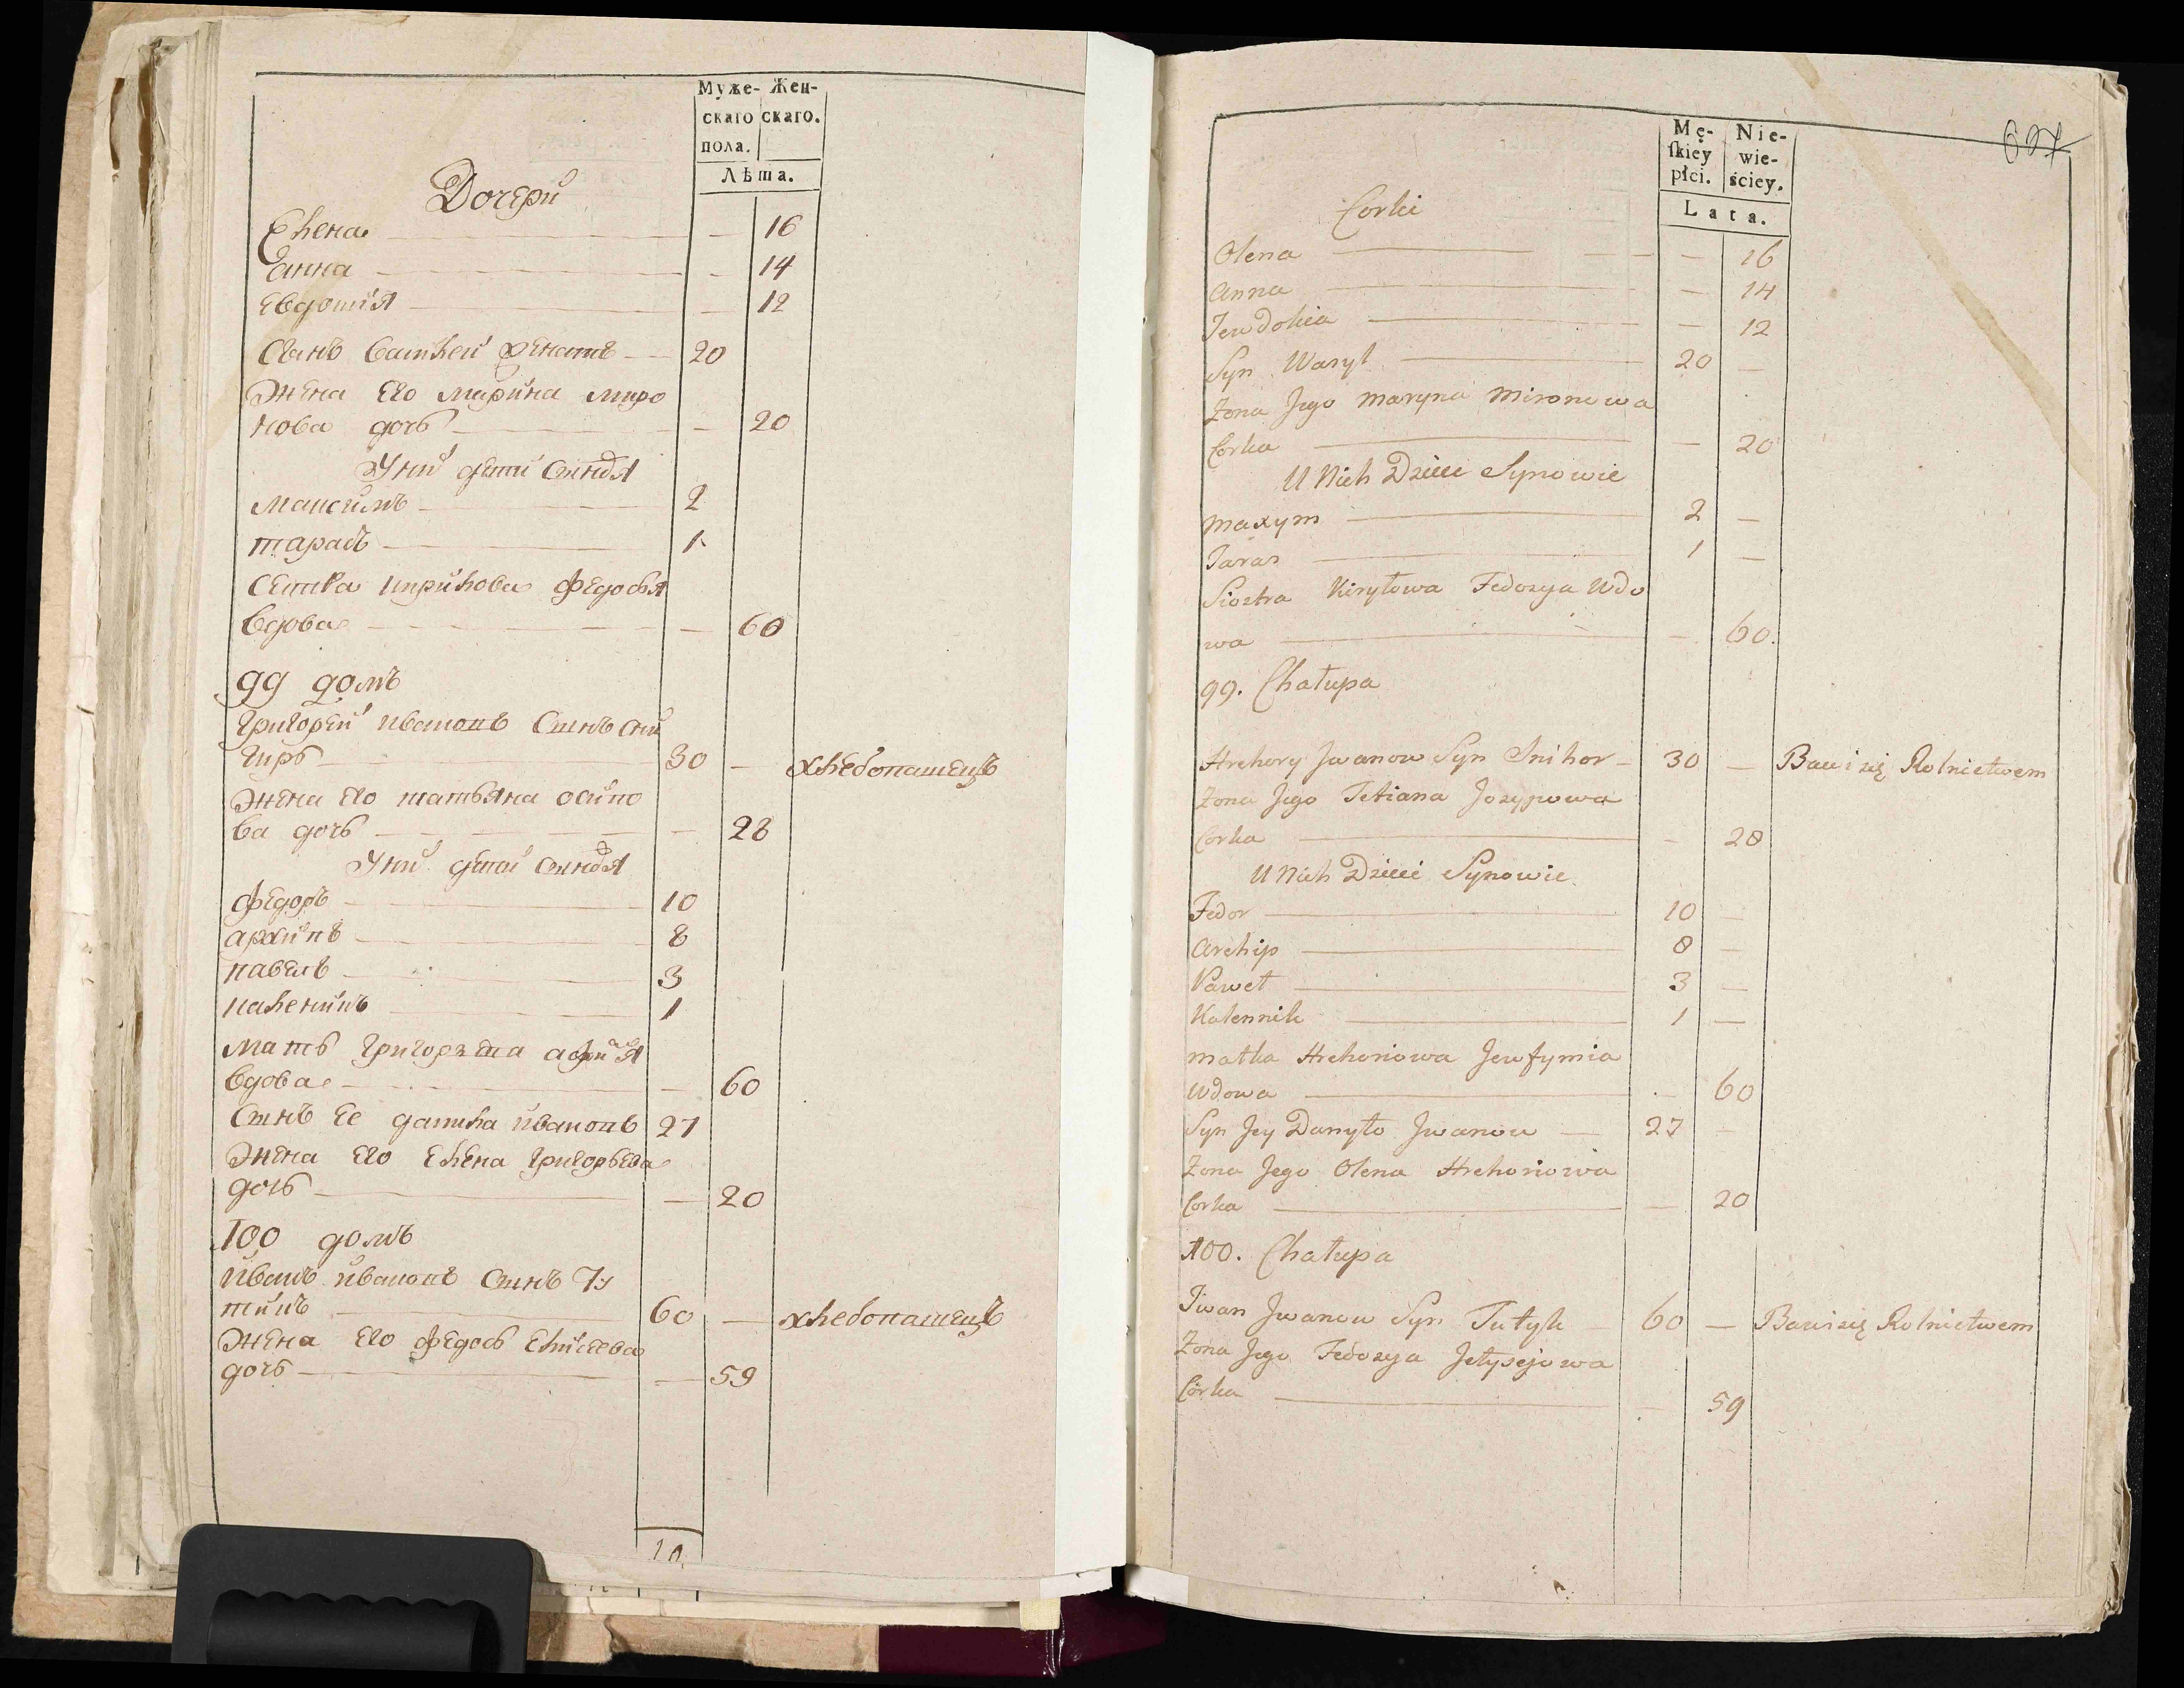 Муже- Жен-
скаго скаго.
пола.
Лѣта.
Дочери
Елена — 16
Анна — 14
Евдотия — 12
Сынъ Василей женатъ — 20
Жена Его Марина Миро
нова дочь — 20
У ниӽ дети Сыновя
Максимъ — 2
Тарасъ — 1
Сестра Кирилова Федосья
Вдова — 60
99 домъ
Григорей Ивановъ Сынъ Сни
гирь 30 — хлебопашецъ
Жена Его Татьяна Осипо
ва дочь — 28
У них дети Сыновя
Федоръ — 10
Архипъ — 8
Павелъ — 3
Каленикъ — 1
Мать Григорьева
Вдова — 60
Сынъ Ее Данила Ивановъ 27
Жена Его Елена Григорьева
дочь — 20
100 домъ
Иванъ Ивановъ Сынъ Ту
тикъ 60 — хлебопашецъ
Жена Его Федось Елисеева
дочь — 59
10
697
Mę- Nie-
skiey wie-
płci. ściey.
Lata.
Corki
Olena — 16
Anna — 14
Jewdokia — 12
Syn Wasyl — 20 —
Zona Jego Maryna Mironowa
Corka — 20
U Nich Dzieci Synowie
Maxym — 2 —
Taras — 1 —
Siostra Kiryłowa Fedosya Wdo
wa — 60.
99. Chałupa
Hrehory Jwanow Syn Snihor — 30 — Bawi się Rolnictwem
Zona Jego Tetiana Josypowa
Corka — 28
U Nich Dzieci Synowie
Fedor — 10 —
Archip — 8 —
Paweł — 3 —
Kalennik — 1 —
Matka Hrehoriowa Jewfymia
Wdowa — 60
Syn Jey Danyło Jwanow — 27 —
Zona Jego Olena Hrehoriowa
Corka — 20
100. Chałupa
Iwan Jwanow Syn Tutyk — 60 — Bawi się Rolnictwem
Zona Jego Fedosya Jełysejowa
Córka — 59